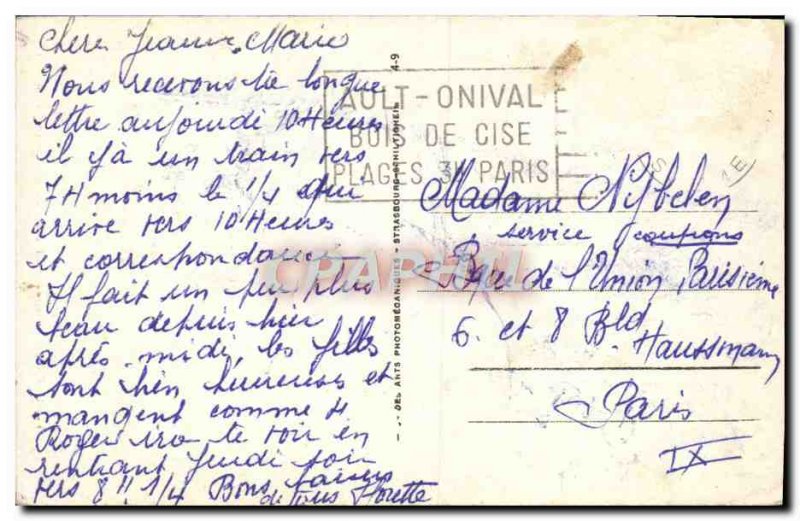 Chère Jeanne Marie
Nous recevons ta longue
lettre aujoudi 10 Heures
il y à un train vers
7H moins le 1/4 qui
arrive vers 10 Heures
et correspondance
Il fait un peu plus
beau depuis hier
après-midi, les filles
sont bien heureuses et
mangent comme 4
Roger ira te voir en
rentrant Jeudi soir
vers 8H 1/4 Bons baisers
de tous
AULT-ONIVAL
BOIS DE CISE
PLAGES PARIS
4-9
DES ARTS PHOTOMÉCANIQUES - STRASBOURG-SCHILTIGHEIM
CPAPHIL
Madame
service coupons
Bque de l'Union Parisienne
6 et 8 Bld
Haussmann
Paris
IX